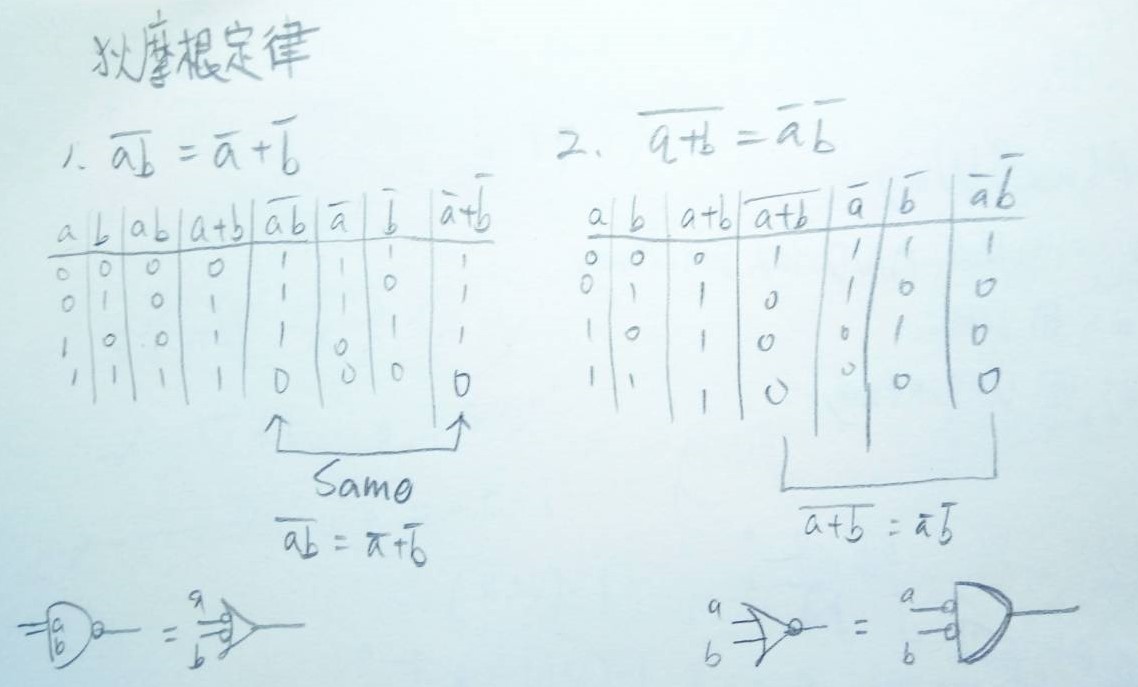 狄摩根定律
1. a̅b̅ = a̅ + b̅
a b ab a+b a̅b̅ a̅ b̅ a̅+b̅
0 0 0 0 1 1 1 1
0 1 0 1 1 1 0 1
1 0 0 1 1 0 1 1
1 1 1 1 0 0 0 0
Same
a̅b̅ = a̅+b̅
a
b
=
a
b
2. a̅+̅b̅ = a̅ b̅
a b a+b a̅+̅b̅ a̅ b̅ a̅ b̅
0 0 0 1 1 1 1
0 1 1 0 1 0 0
1 0 1 0 0 1 0
1 1 1 0 0 0 0
a̅+̅b̅ = a̅ b̅
a
b
=
a
b